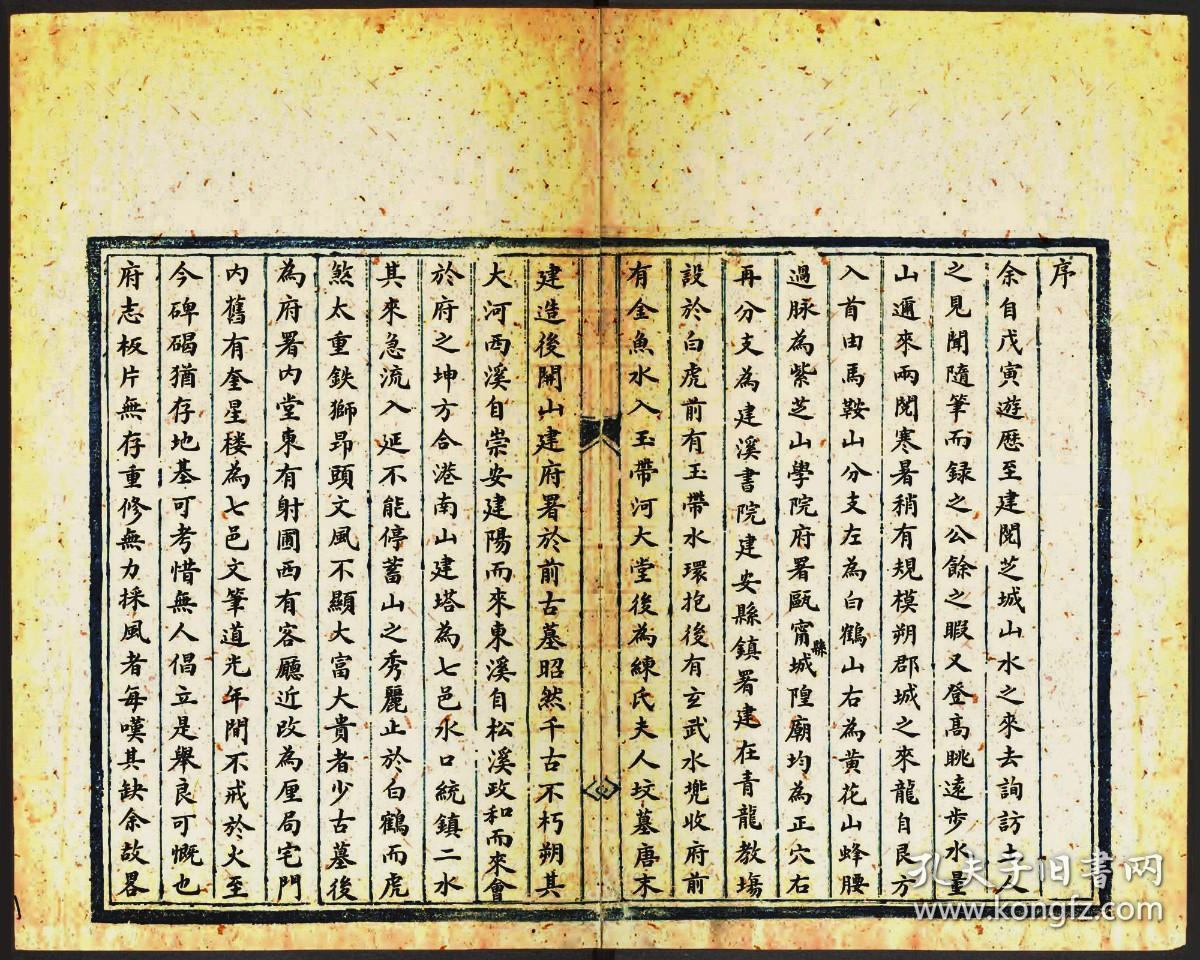 序
余自戊寅遊歷至建閱芝城山水之來去詢訪土人
之見聞隨筆而録之公餘之暇又登髙眺遠步水量
山邇來兩閱寒暑稍有規模朔郡城之來龍自艮方
入首由馬鞍山分支左為白鶴山右為黄花山蜂腰
過脉為紫芝山學院府署甌甯縣城隍廟均為正穴右
再分支為建溪書院建安縣鎮署建在青龍教塲
設於白虎前有玉帶水環抱後有玄武水兠收府前
有金魚水入玉帶河大堂後為練氏夫人坟墓唐末
建造後開山建府署於前古墓昭然千古不朽朔其
大河西溪自崇安建陽而來東溪自松溪政和而來會
於府之坤方合港南山建塔為七邑水口統鎮二水
其來急流入延不能停蓄山之秀麗止於白鶴而虎
煞太重鉄獅昂頭文風不顯大富大貴者少古墓後
為府署内堂東有射圃西有客廳近改為厘局宅門
内舊有奎星楼為七邑文筆道光年間不戒於火至
今碑碣猶存地基可考惜無人倡立是舉良可慨也
府志板片無存重修無力採風者每嘆其缺余故畧
孔夫子旧书网
www.kongfz.com